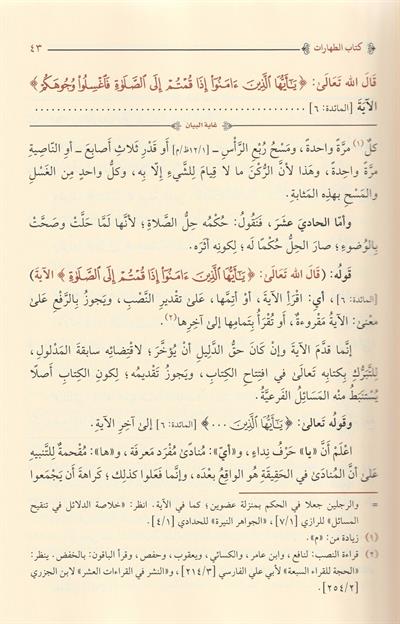 كتاب الطهارات ٤٣
قَالَ الله تَعَالَىٰ: ﴿ يَـٰٓأَيُّهَا ٱلَّذِينَ ءَامَنُوٓا۟ إِذَا قُمْتُمْ إِلَى ٱلصَّلَوٰةِ فَٱغْسِلُوا۟ وُجُوهَكُمْ ﴾
الآيَةَ [المائدة: ٦] ........................................
غاية البيان
كلٌّ(١) مرَّةً واحدةً، ومَسْحُ رُبْعِ الرَّأْسِ ـ [١٢/١ظ/م] أو قَدْرِ ثلاثِ أصابعَ ـ أو النَّاصِيَةِ
مرَّةً واحِدةً، وهَذا لأنَّ الرُّكْنَ ما لا قِيامَ لِلشَّيءِ إلَّا بِه، وكلُّ واحدٍ مِن الغَسْلِ
والمَسْحِ بهذِه المَثابةِ.
وأمّا الحاديَ عشَرَ، فنَقُولُ: حُكْمُه حِلُّ الصَّلاةِ؛ لأنَّها لَمَّا حَلَّتْ وصَحَّتْ
بِالوُضوءِ؛ صارَ الحِلُّ حُكْمًا لَه؛ لِكونِه أثَرَه.
قولُه: (قَالَ اللهُ تعَالَىٰ: ﴿ يَـٰٓأَيُّهَا ٱلَّذِينَ ءَامَنُوٓا۟ إِذَا قُمْتُمْ إِلَى ٱلصَّلَوٰةِ ﴾ الآيةَ)
[المائدة: ٦]، أي: اقْرَأِ الآيَةَ، أوْ أتِمَّها، علَىٰ تقْديرِ النَّصْبِ، ويَجوزُ بِالرَّفْعِ علَىٰ
معْنَىٰ: الآيةُ مَقْروءةٌ، أو تُقْرَأُ بِتَمامِها إلىٰ آخِرِها(٢).
إنَّما قدَّمَ الآيةَ وإنْ كانَ حقُّ الدَّليلِ أنْ يُؤخَّرَ؛ لاقْتِضائِه سابقةَ المَدْلولِ،
لِلتَّبرُّكِ بِكتابِه تعَالَىٰ في افتِتاحِ الكِتابِ، ويَجوزُ تَقْديمُه؛ لِكونِ الكِتابِ أصلًا
يُسْتَنبَطُ منْه المَسائِلُ الفَرعيَّةُ.
وقَولُه تعالىٰ: ﴿ يَـٰٓأَيُّهَا ٱلَّذِينَ ... ﴾ [المائدة: ٦] إلىٰ آخرِ الآيةِ.
اعْلَمْ أنَّ «يا» حَرْفُ نِداءٍ، و«أيّ»: مُنادًى مُفْرَدٌ معَرفة، و«ها»: مُقْحمةٌ لِلتَّنبيهِ
علَىٰ أنَّ المُنادَىٰ في الحَقِيقةِ هُو الواقِعُ بعْدَه، وإنَّما فعَلُوا كذلِك؛ كَراهةَ أنْ يَجْمَعوا
= والرجلين جعلا في الحكم بمنزلة عضوين؛ كما في الآية. انظر: «خلاصة الدلائل في تنقيح
المسائل» للرازي [٧/١]، «الجواهر النيرة» للحدادي [٤/١].
(١) زيادة من: «م».
(٢) قراءة النصب: لنافع، وابن عامر، والكسائي، ويعقوب، وحفص، وقرأ الباقون: بالخفض. ينظر:
«الحجة للقراء السبعة» لأبي علي الفارسي [٢١٤/٣]، و«النشر في القراءات العشر» لابن الجزري
[٢٥٤/٢].